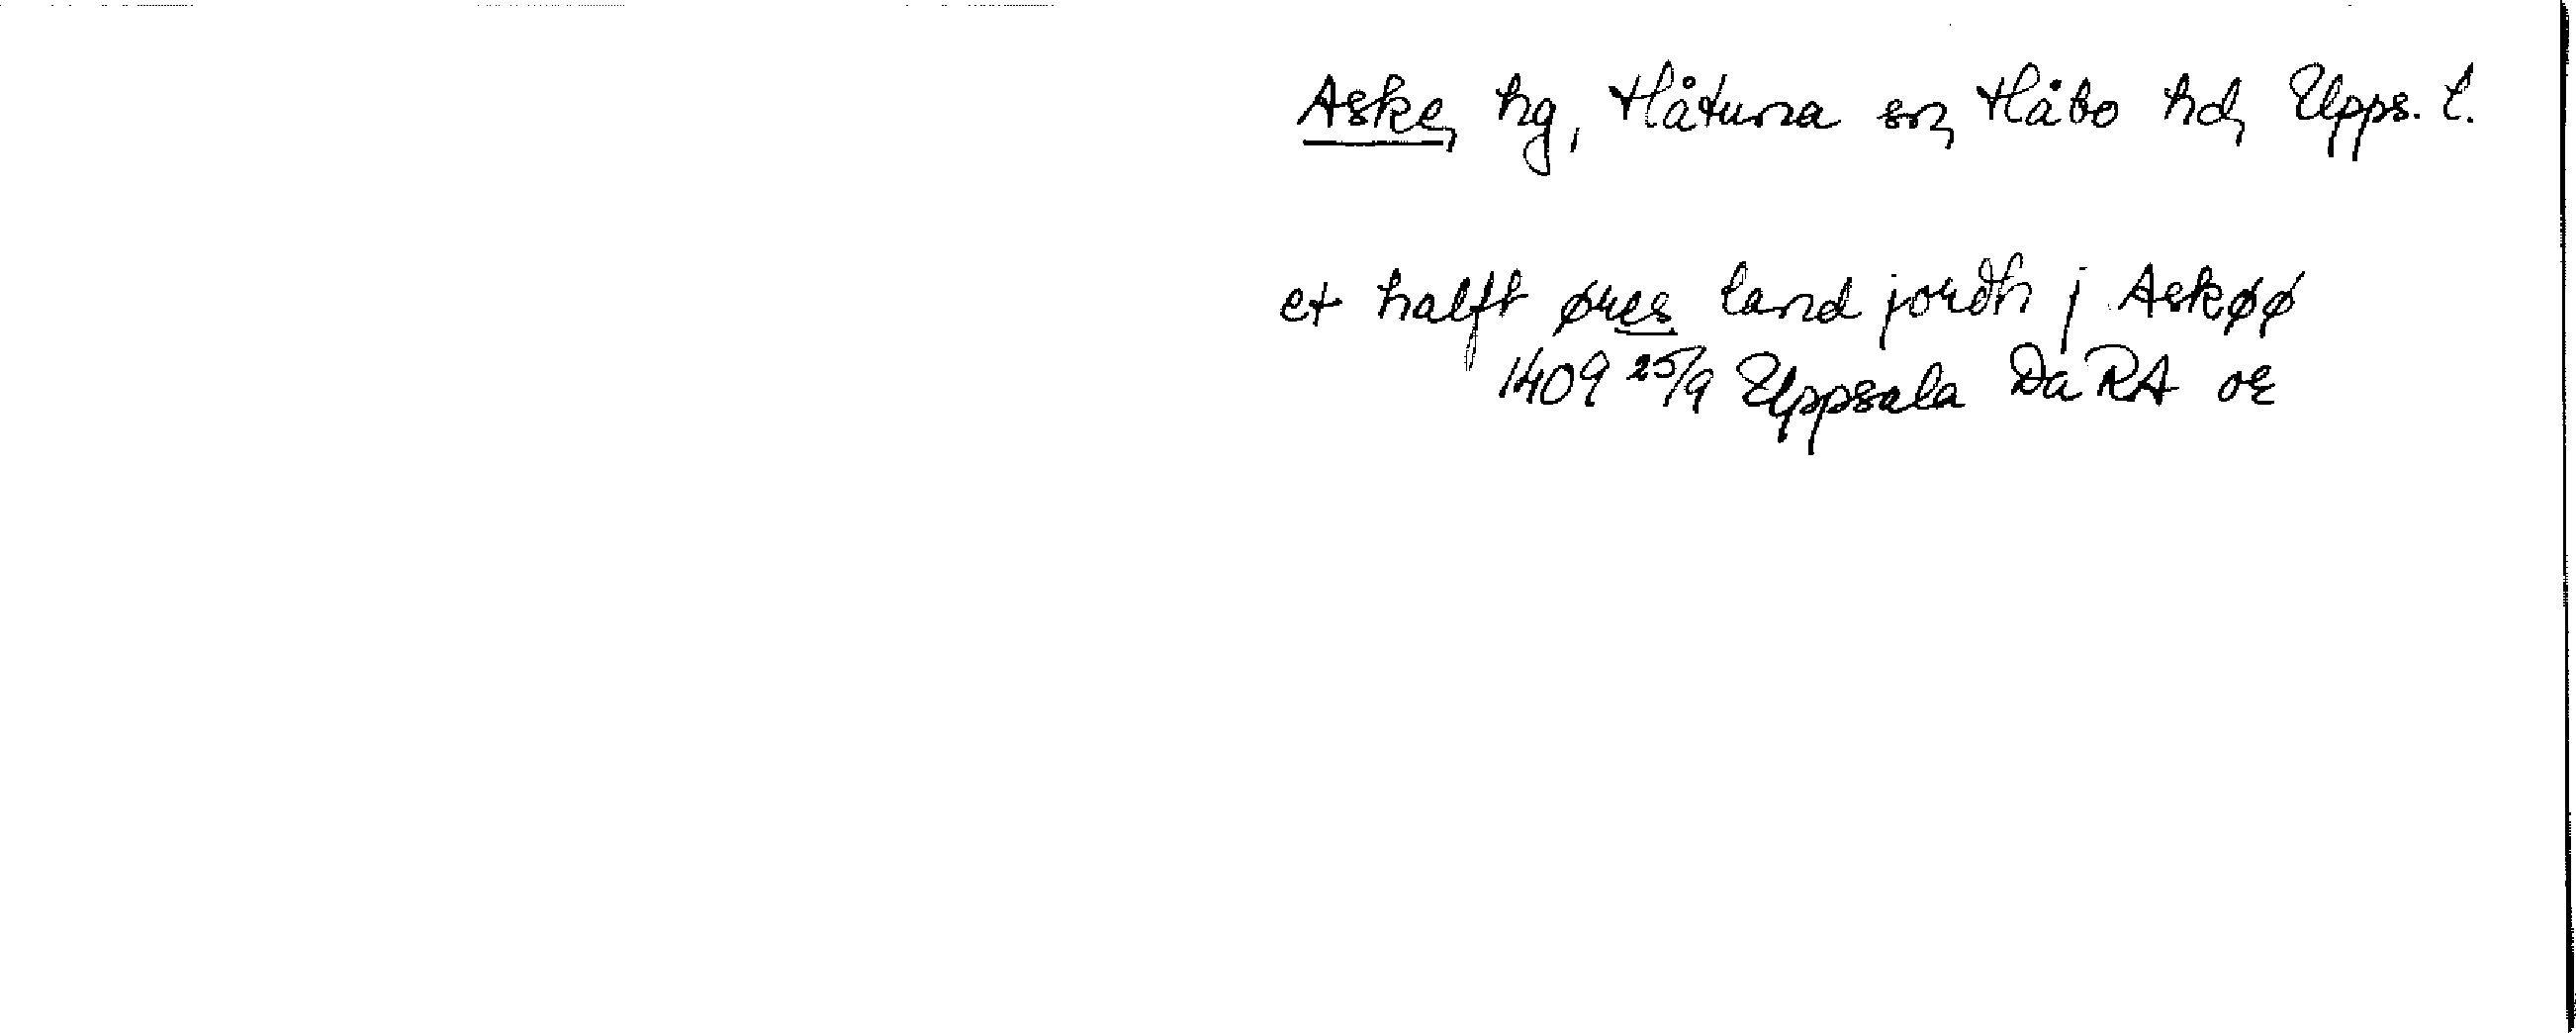 Aske, hg, Håtuna sn, Håbo hd, Upps. l.
et halft øres land jordh j Askøø
1409 25/9 Uppsala Da RA or